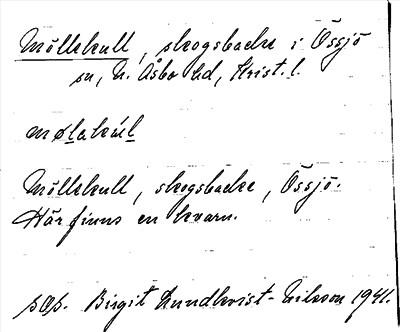 Möllekull, skogsbacke i Össjö
sn, N. Åsbo hd, Krist. l.
møl̲akúl̲
Möllekull, skogsbacke, Össjö.
Här finns en kvarn.
pop. Birgit Lundkvist-Nilsson 1941.